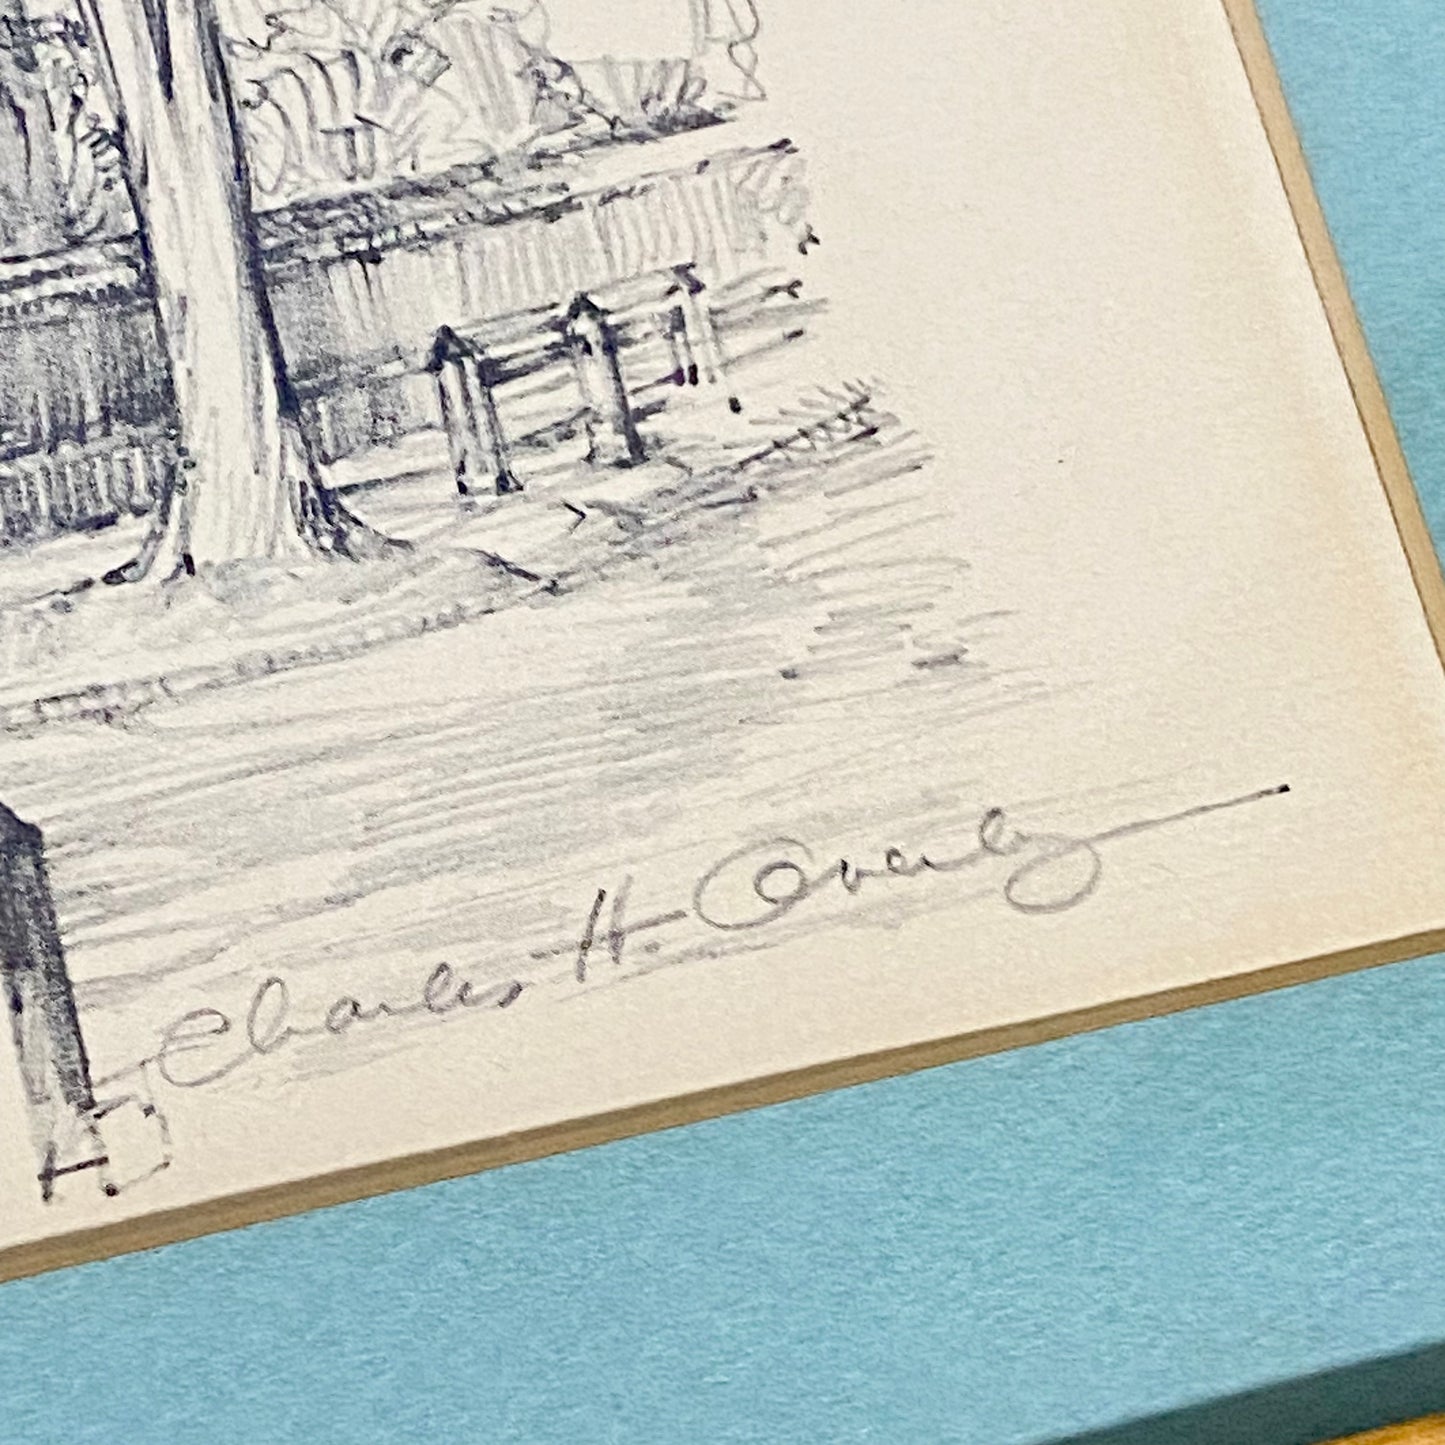 Charles H. Overly